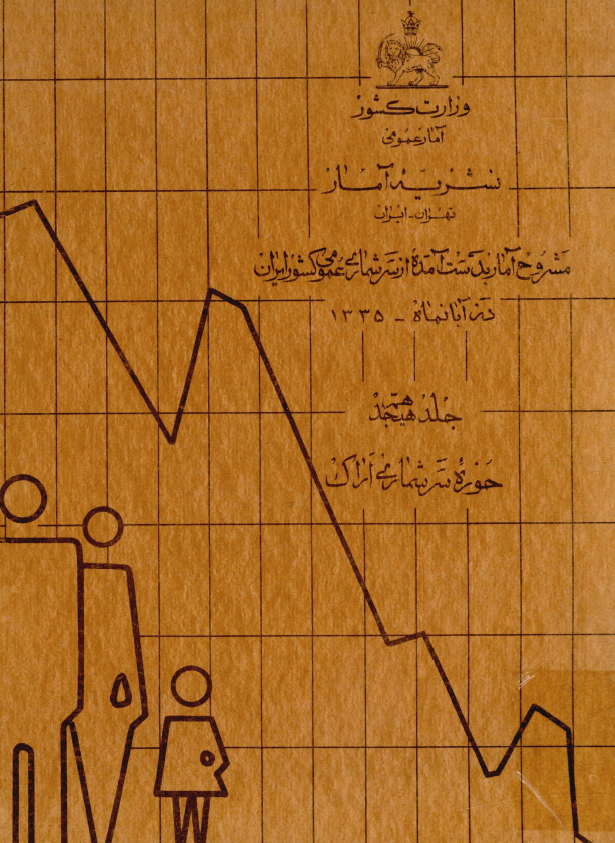 وزارت کشور
آمار عمومی
نشریهٔ آمار
تهران - ایران
مشروح آمار بدست آمدهٔ از سرشماری عمومی کشور ایران
در آبانماه - ۱۳۳۵
جلد هیجدهم
حوزهٔ سرشماری اراک